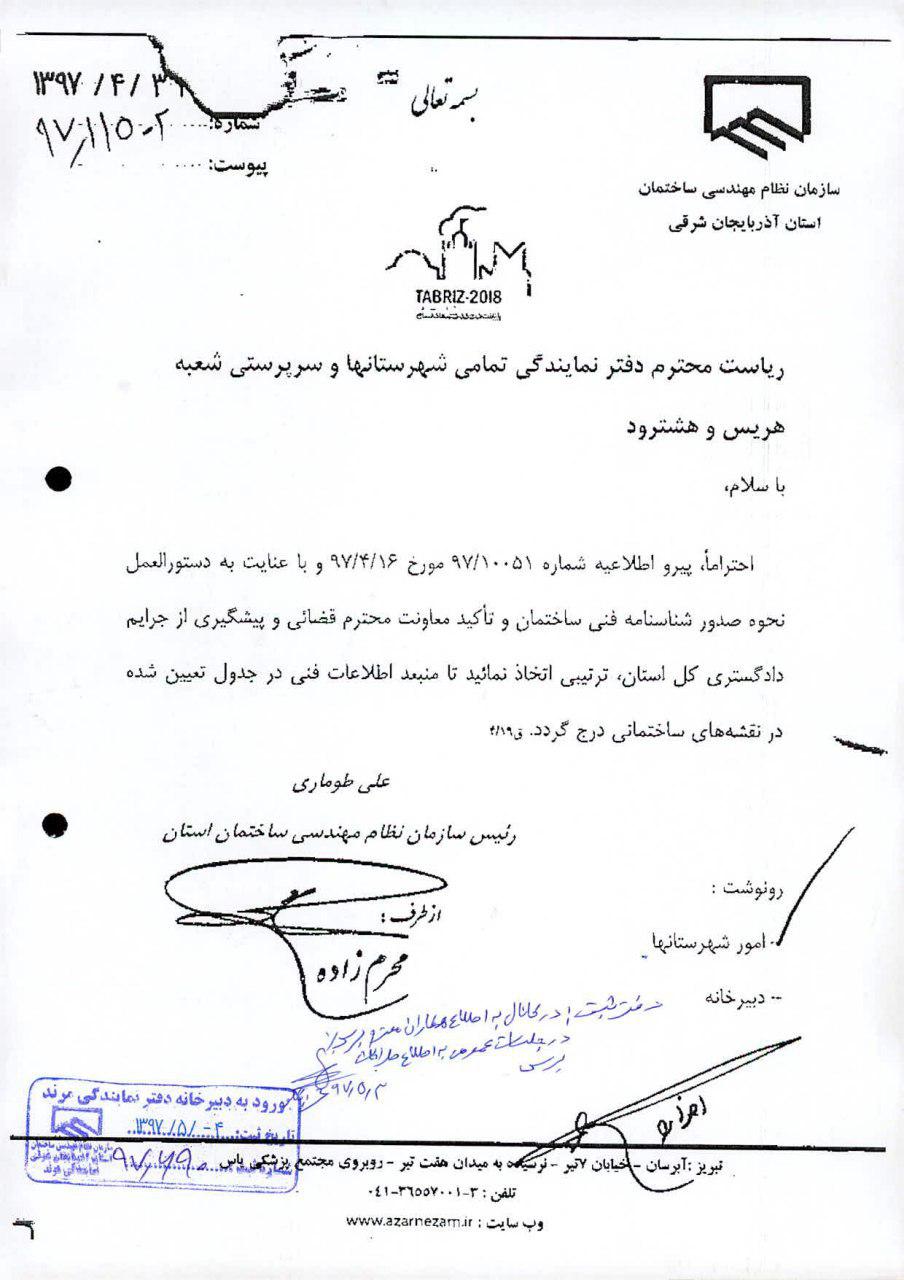 بسمه تعالی
۱۳۹۷/۴/۳
شماره:
۹۷٫۱۱۵۰۲
پیوست:
سازمان نظام مهندسی ساختمان
استان آذربایجان شرقی
TABRIZ-2018
ریاست محترم دفتر نمایندگی تمامی شهرستانها و سرپرستی شعبه
هریس و هشترود
با سلام،
احتراماً، پیرو اطلاعیه شماره ۹۷/۱۰۰۵۱ مورخ ۹۷/۴/۱۶ و با عنایت به دستورالعمل
نحوه صدور شناسنامه فنی ساختمان و تأکید معاونت محترم قضائی و پیشگیری از جرایم
دادگستری کل استان، ترتیبی اتخاذ نمائید تا منبعد اطلاعات فنی در جدول تعیین شده
در نقشه‌های ساختمانی درج گردد. ق۴/۱۹
علی طوماری
رئیس سازمان نظام مهندسی ساختمان استان
از طرف:
محرم زاده
رونوشت :
- امور شهرستانها
-- دبیرخانه
در جلسات عمومی به اطلاع
۹۷٫۵٫۲
ورود به دبیرخانه دفتر نمایندگی مرند
تاریخ ثبت: ۱۳۹۷/۵/۰۴
۹۷٫۶۹۰
تبریز :آبرسان - خیابان ۷تیر - نرسیده به میدان هفت تیر - روبروی مجتمع پزشکی یاس
تلفن : ۳-۳۶۵۵۷۰۰۱-۰۴۱
وب سایت : www.azarnezam.ir